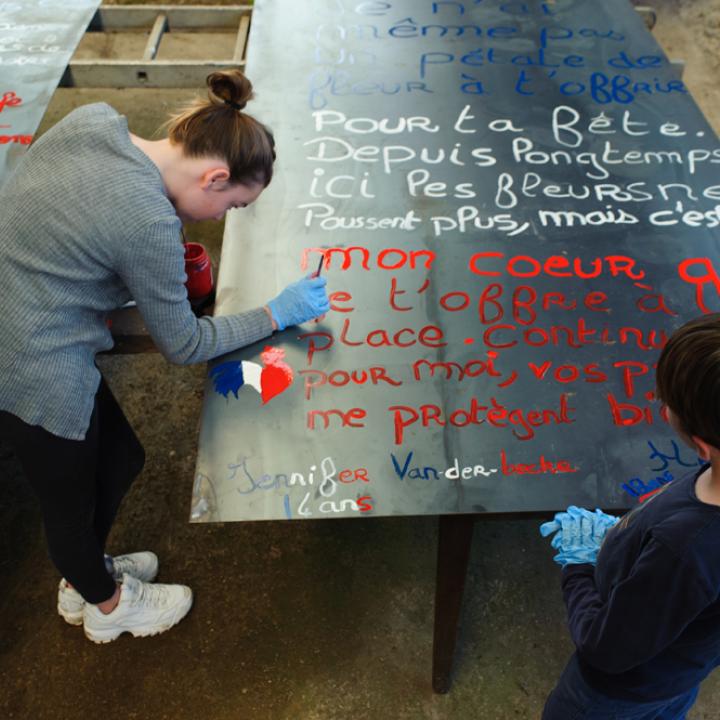 Je n'ai
même pas
un pétale de
fleur à t'offrir
Pour ta fête.
Depuis longtemps
ici les fleurs ne
Poussent plus, mais c'est
mon coeur q
je t'offre à l
place. Continu
pour moi, vos p
me protègent bi
Jennifer Van-der-becke
14 ans